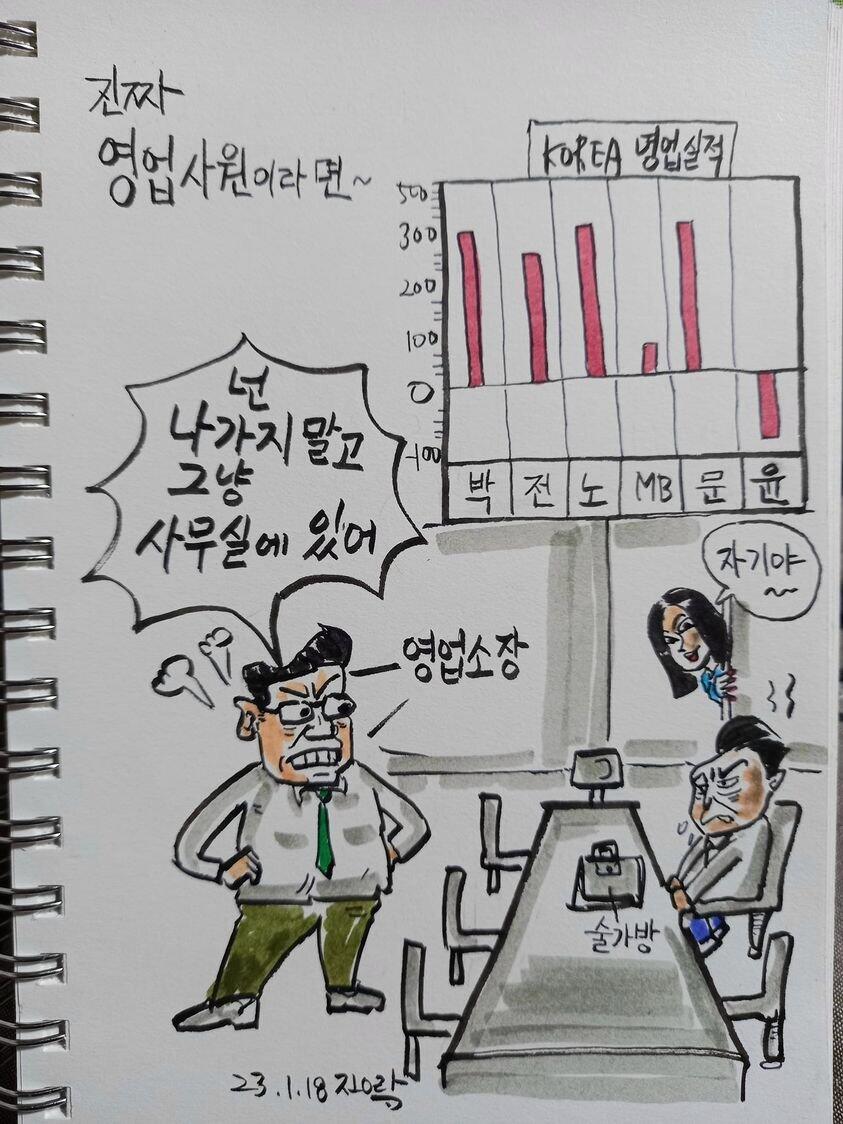 진짜
영업사원이라면~
KOREA 영업실적
500
300
200
100
0
-100
박 전 노 MB 문 윤
넌
나가지 말고
그냥
사무실에 있어
자기야~~
영업소장
술가방
23.1.18